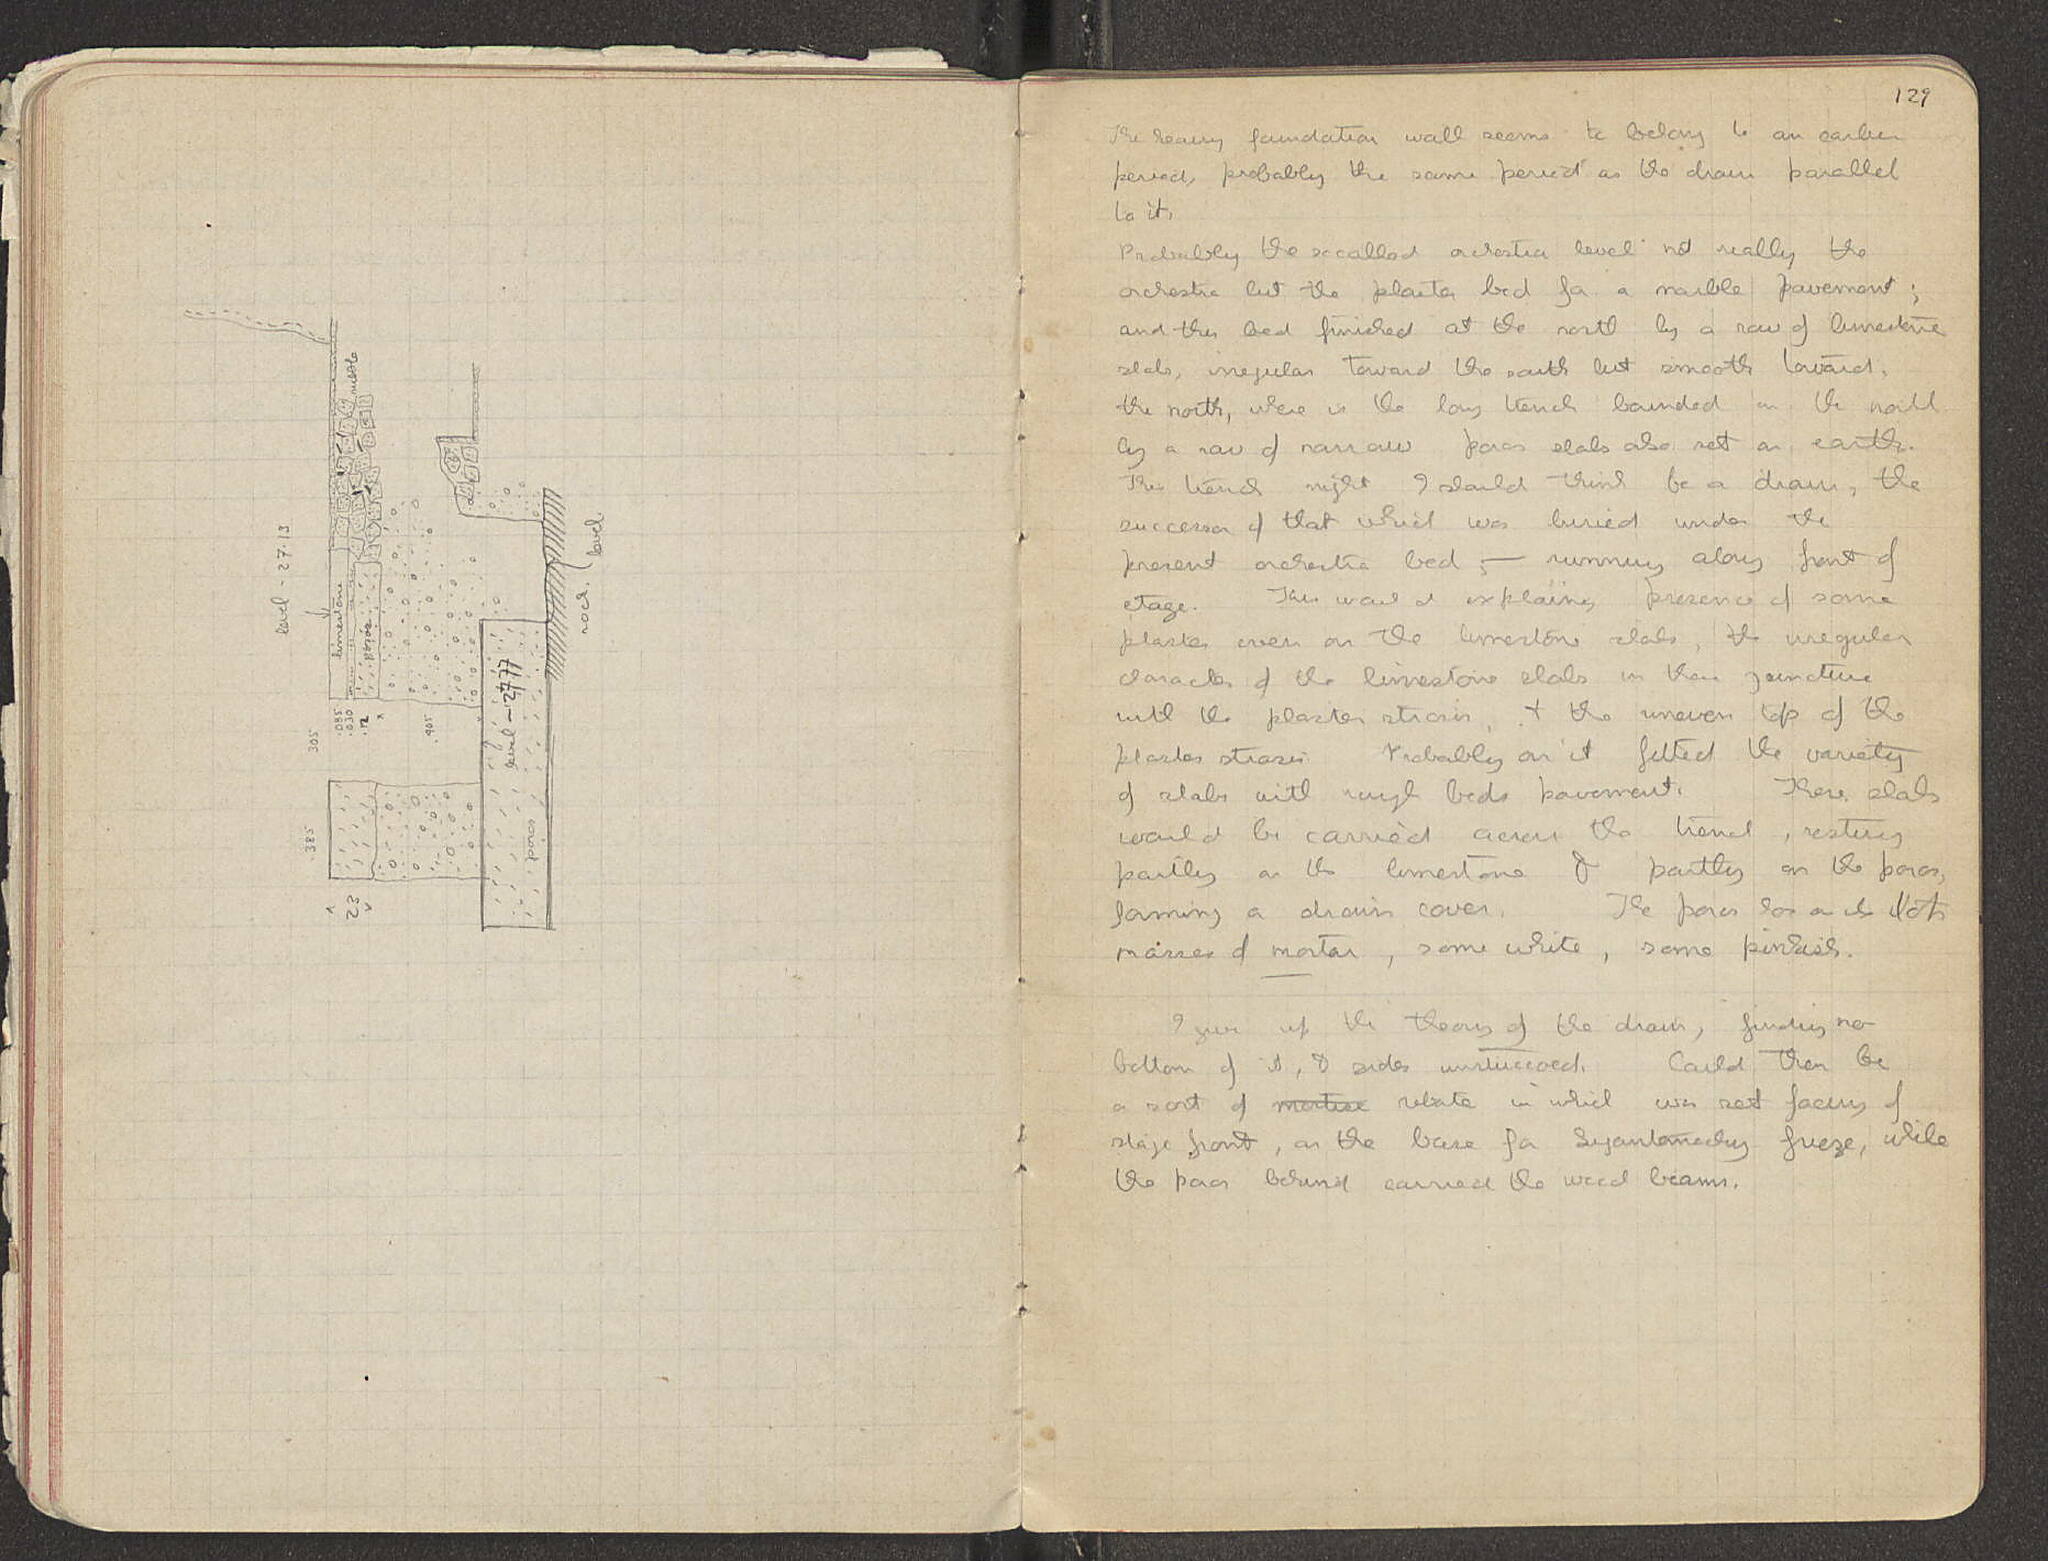 level - 27.13
limestone
poros
rubble
.085
.030
.12
.305
.905
.385
23
level - 27.77
poros
rock level
129
The heavy foundation wall seems to belong to an earlier
period, probably the same period as the drain parallel
to it.
Probably the socalled orchestra level not really the
orchestra but the plaster bed for a marble pavement;
and this bed finished at the north by a row of limestone
slabs, irregular toward the south but smooth toward
the north, where is the long trench bounded on the north
by a row of narrow poros slabs also set on earth.
This trench might I should think be a drain, the
successor of that which was buried under the
present orchestra bed, — running along front of
stage. This would explain presence of some
plaster even on the limestone slabs, the irregular
character of the limestone slabs in their juncture
with the plaster strosis, + the uneven top of the
plaster strosis. Probably on it fitted the variety
of slabs with rough beds pavement. These slabs
would be carried across the trench, resting
partly on the limestone & partly on the poros,
forming a drain cover. The poros has on its top
masses of mortar, some white, some pinkish.
I give up the theory of the drain, finding no
bottom of it, & sides unstuccoed. Could then be
a sort of mortise rebate in which was set facing of
stage front, as the base for Gigantomachy frieze, while
the poros behind carried the wood beams.